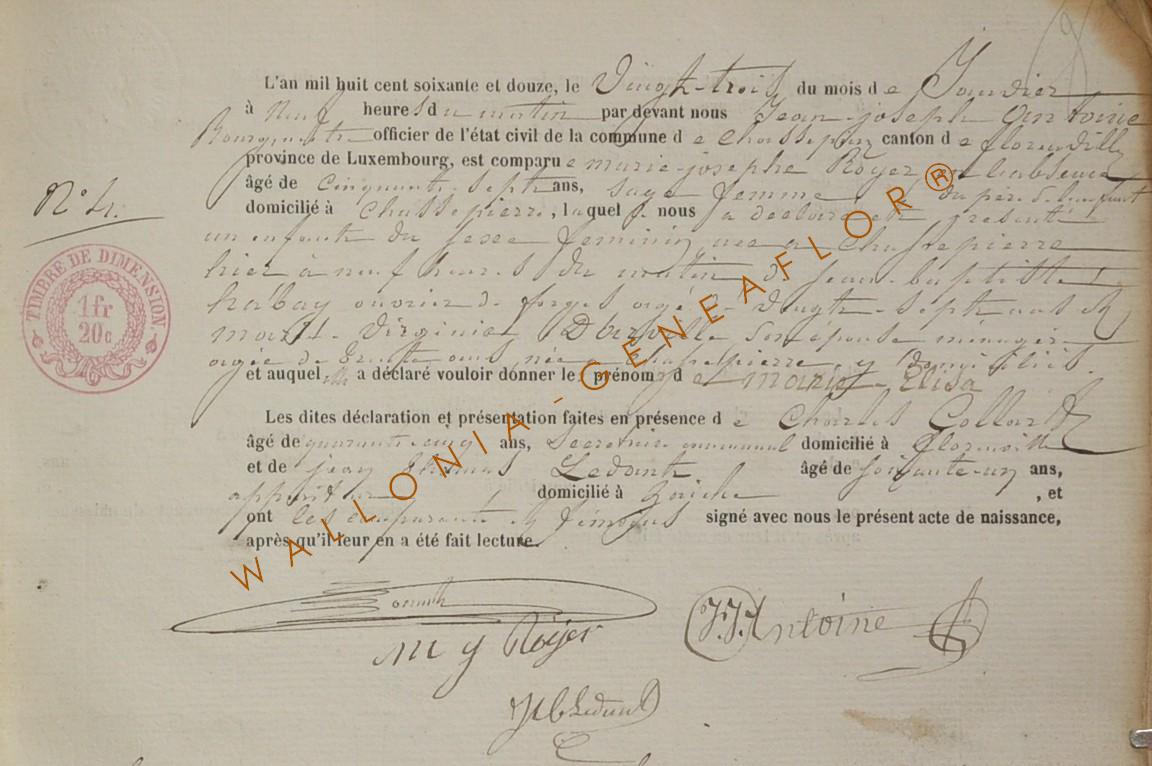 L'an mil huit cent soixante et douze, le Vingt-trois du mois de Janvier
à Neuf heures du matin par devant nous Jean-joseph Antoine
Bourgmestre officier de l'état civil de la commune de Chassepierre canton de florenville
province de Luxembourg, est comparue marie-josephe Royer en l'absence
âgé de Cinquante-sept ans, sage femme du père de l'enfant
domicilié à Chassepierre, laquelle nous a déclaré et présenté
un enfant du sexe feminin née a Chassepierre
hier à neuf heures du matin de jean-baptiste
habay ouvrier de forges agé de vingt-sept ans et
Marie-Virginie son épouse ménagère
agée de trente ans née a Chassepierre y domiciliés.
et auquel elle a déclaré vouloir donner le prénom de marie-Elisa
Les dites déclaration et présentation faites en présence de Charles Gollard
âgé de quarante-cinq ans, Secretaire communal domicilié à florenville
et de jean Ledant âgé de soixante-un ans,
domicilié à , et
ont les comparants et témoins signé avec nous le présent acte de naissance,
après qu'il leur en a été fait lecture.
N° 4.
TIMBRE DE DIMENSION.
1fr
20c
WALLONIA-GENEAFLOR®
J.J. Antoine
M J Royer